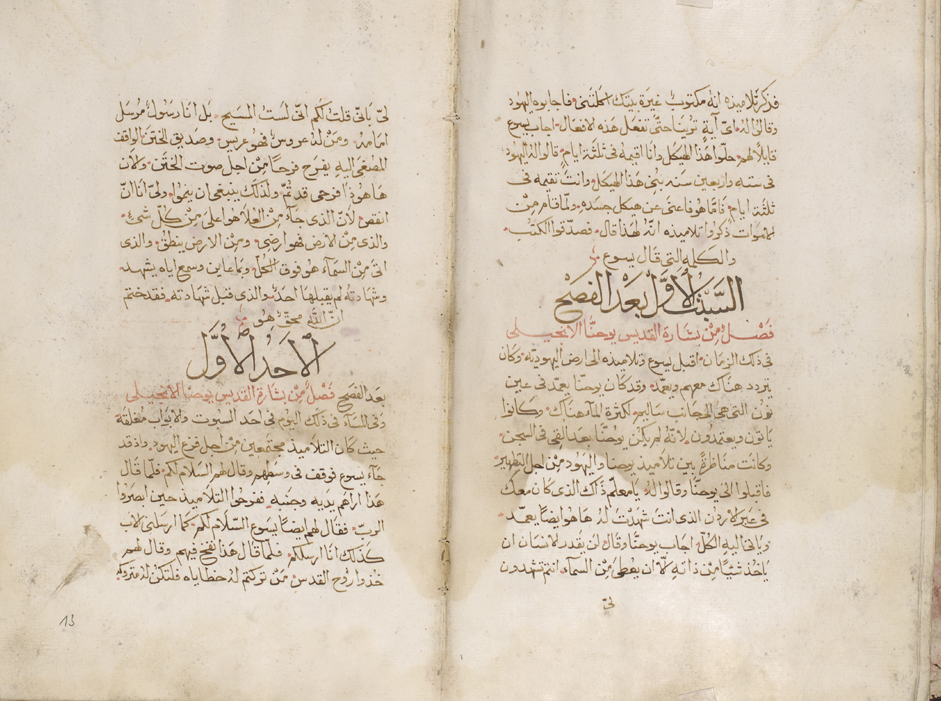 فذكر تلاميذه انه مكتوب غيرة بيتك اكلتني فاجابوه اليهود
وقالوا له اي آية ترينا حتى تفعل هذه الافعال اجاب يسوع
قايلا لهم حلوا هذا الهيكل وانا اقيمه في ثلثة ايام قالوا له اليهود
في ستة واربعين سنة بني هذا الهيكل وانت تقيمه في
ثلثة ايام فاما هو فاعني عن هيكل جسده ولما قام من
الاموات ذكروا تلاميذه انه لهذا قال فصدقوا الكتب
والكلمة التي قال يسوع
السبت الاول بعد الفصح
فصل من بشارة القديس يوحنا الانجيلي
في ذلك الزمان اقبل يسوع وتلاميذه الى ارض اليهودية وكان
يتردد هناك معهم ويعمد وقد كان يوحنا يعمد في عين
نون التي هي الى جانب ساليم لكثرة الماء هناك وكانوا
ياتون ويعتمدون لانه لم يكن يوحنا بعد القي في السجن
وكانت مناظرة بين تلاميذ يوحنا واليهود من اجل التطهير
فاقبلوا الى يوحنا وقالوا له يا معلم ذاك الذي كان معك
في عبر الاردن الذي انت شهدت له ها هو ايضا يعمد
وياتي اليه الكل اجاب يوحنا وقال لن يقدر الانسان ان
ياخذ شيا من ذاته الا ان يعطى من السماء انتم تشهدون
لي
لي باني قلت لكم اني لست المسيح بل انا رسول مرسل
امامه ومن له عروس فهو عريس وصديق الختن الواقف
المصغي اليه يفرح فرحا من اجل صوت الختن ولان
ها هوذا فرحي قد تم ولذلك ينبغي ان ينموا ولي انا ان
انقص لان الذي جاء من العلا هو اعلى من كل شيء
والذي من الارض فهو ارضي ومن الارض ينطق والذي
اتى من السماء هو فوق الكل وبما عاين وسمع اياه يشهد
وشهادته لم يقبلها احد والذي قبل شهادته فقد ختم
ان الله محق هو
الاحد الاول
بعد الفصح فصل من بشارة القديس يوحنا الانجيلي
وفي المساء في ذلك اليوم في احد السبوت والابواب مغلقة
حيث كان التلاميذ مجتمعين من اجل فزع اليهود واذ قد
جاء يسوع فوقف في وسطهم وقال لهم السلام لكم فلما قال
هذا اراهم يديه وجنبه ففرحوا التلاميذ حين ابصروا
الرب فقال لهم ايضا يسوع السلام لكم كما ارسلني الاب
كذلك انا ارسلكم فلما قال هذا نفخ فيهم وقال لهم
خذوا روح القدس من تركتم له خطاياه فلتكن له متروكة
13